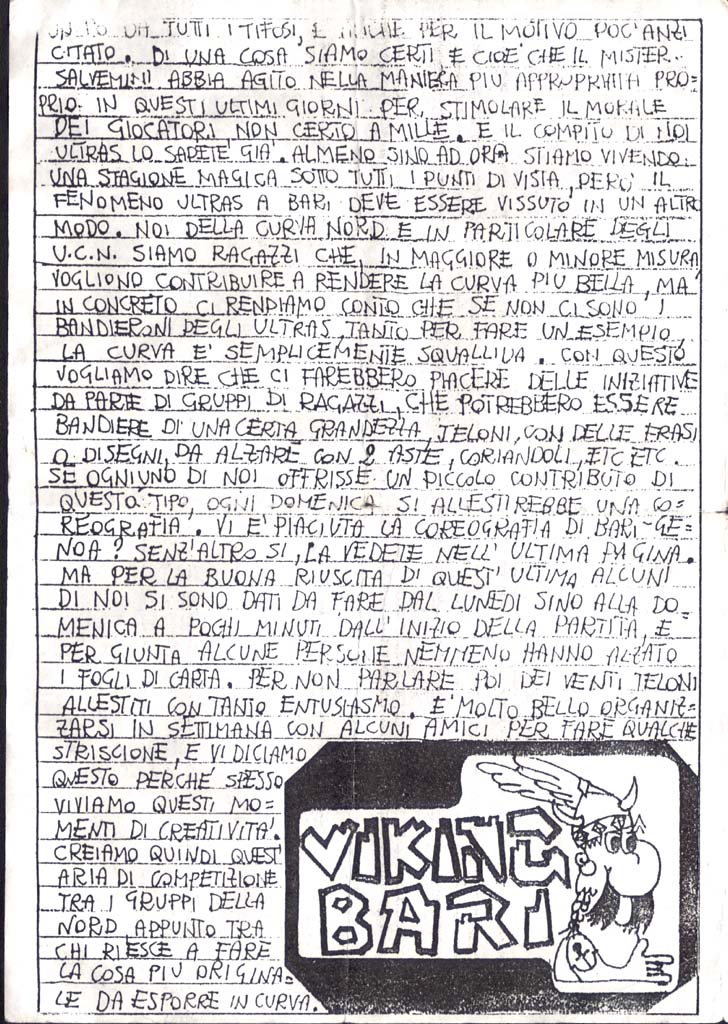 UN PO' DA TUTTI I TIFOSI, E ANCHE PER IL MOTIVO POC'ANZI
CITATO. DI UNA COSA SIAMO CERTI, E CIOE' CHE IL MISTER
SALVEMINI ABBIA AGITO NELLA MANIERA PIU APPROPRIATA PRO=
PRIO IN QUESTI ULTIMI GIORNI PER STIMOLARE IL MORALE
DEI GIOCATORI, NON CERTO A MILLE. E IL COMPITO DI NOI
ULTRAS LO SAPETE GIA'. ALMENO SINO AD ORA STIAMO VIVENDO
UNA STAGIONE MAGICA SOTTO TUTTI I PUNTI DI VISTA, PERO' IL
FENOMENO ULTRAS A BARI DEVE ESSERE VISSUTO IN UN ALTRO
MODO. NOI DELLA CURVA NORD E IN PARTICOLARE DEGLI
U.C.N. SIAMO RAGAZZI CHE, IN MAGGIORE O MINORE MISURA
VOGLIONO CONTRIBUIRE A RENDERE LA CURVA PIU BELLA, MA
IN CONCRETO CI RENDIAMO CONTO CHE SE NON CI SONO I
BANDIERONI DEGLI ULTRAS, TANTO PER FARE UN ESEMPIO,
LA CURVA E' SEMPLICEMENTE SQUALLIDA. CON QUESTO
VOGLIAMO DIRE CHE CI FAREBBERO PIACERE DELLE INIZIATIVE
DA PARTE DI GRUPPI DI RAGAZZI, CHE POTREBBERO ESSERE
BANDIERE DI UNA CERTA GRANDEZZA, TELONI, CON DELLE FRASI
O DISEGNI, DA ALZARE CON 2 ASTE, CORIANDOLI, ETC ETC.
SE OGNIUNO DI NOI OFFRISSE UN PICCOLO CONTRIBUTO DI
QUESTO TIPO, OGNI DOMENICA SI ALLESTIREBBE UNA CO=
REOGRAFIA. VI E' PIACIUTA LA COREOGRAFIA DI BARI-GE=
NOA? SENZ'ALTRO SI, LA VEDETE NELL'ULTIMA PAGINA.
MA PER LA BUONA RIUSCITA DI QUEST'ULTIMA ALCUNI
DI NOI SI SONO DATI DA FARE DAL LUNEDI SINO ALLA DO=
MENICA A POCHI MINUTI DALL'INIZIO DELLA PARTITA, E
PER GIUNTA ALCUNE PERSONE NEMMENO HANNO ALZATO
I FOGLI DI CARTA. PER NON PARLARE POI DEI VENTI TELONI
ALLESTITI CON TANTO ENTUSIASMO. E' MOLTO BELLO ORGANIZ=
ZARSI IN SETTIMANA CON ALCUNI AMICI PER FARE QUALCHE
STRISCIONE, E VI DICIAMO
QUESTO PERCHE' SPESSO
VIVIAMO QUESTI MO=
MENTI DI CREATIVITA'.
CREIAMO QUINDI QUEST'
ARIA DI COMPETIZIONE
TRA I GRUPPI DELLA
NORD APPUNTO TRA
CHI RIESCE A FARE
LA COSA PIU ORIGINA=
LE DA ESPORRE IN CURVA.
VIKING
BARI